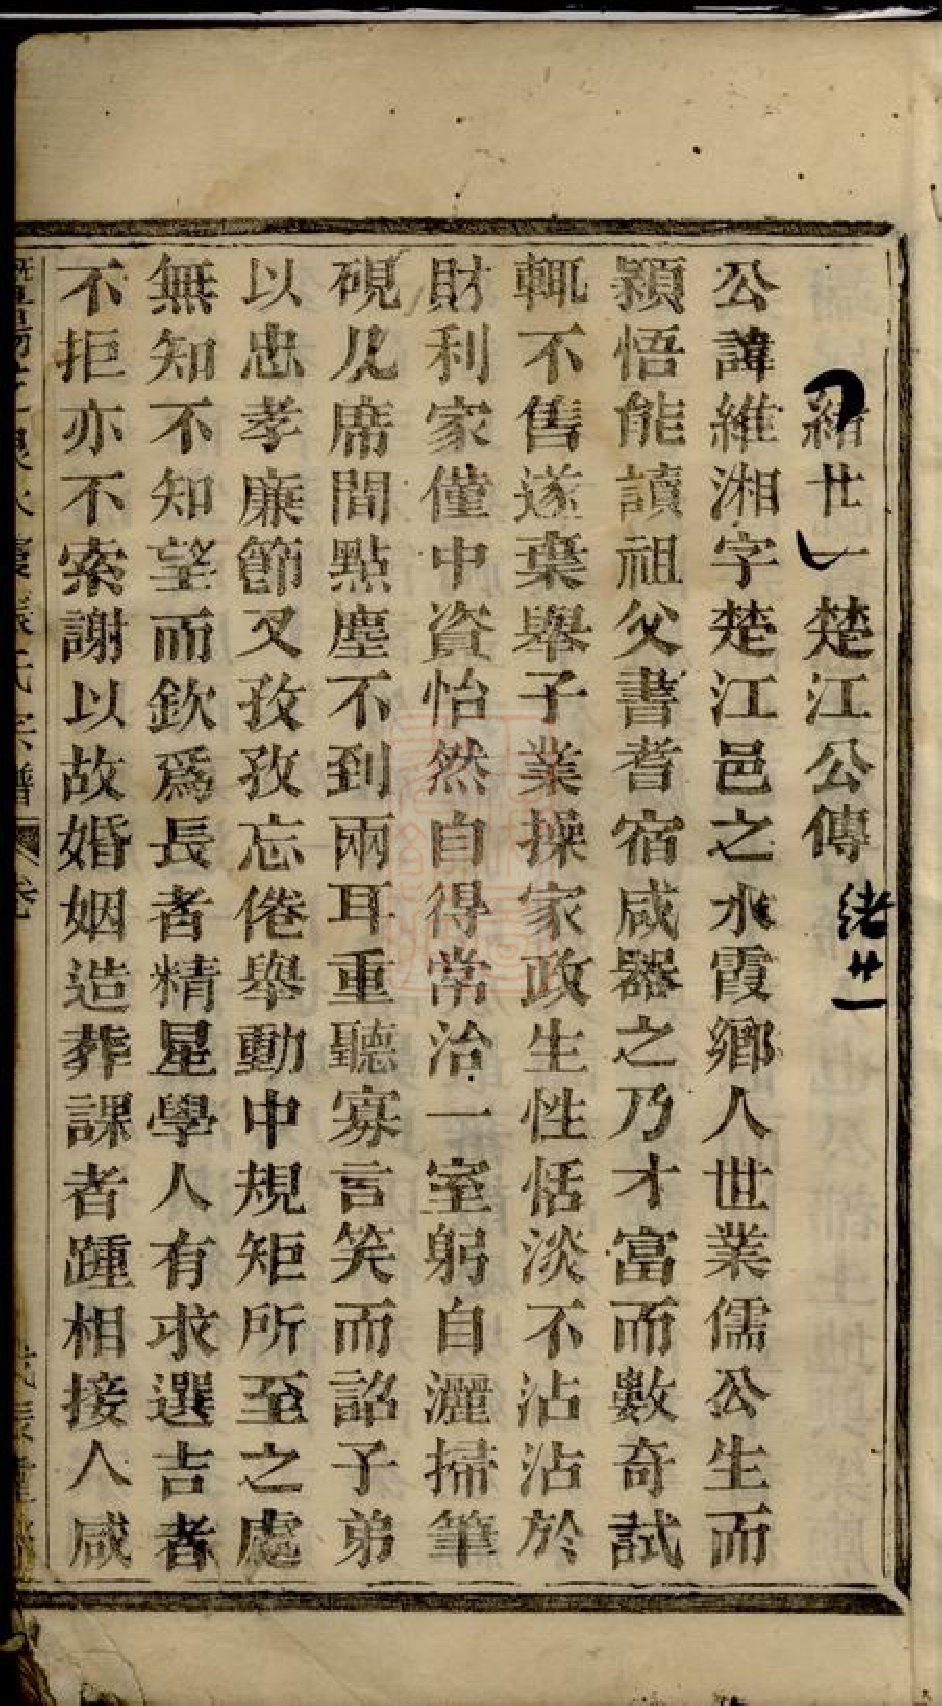 緒廿一楚江公傳
緒廿一
公諱維湘字楚江邑之水霞鄉人世業儒公生而
穎悟能讀祖父書耆宿咸器之乃才富而數奇試
輒不售遂棄舉子業操家政生性恬淡不沾沾於
財利家僅中資怡然自得常治一室躬自灑掃筆
硯几席間點塵不到兩耳重聽寡言笑而詔子弟
以忠孝廉節又孜孜忘倦舉動中規矩所至之處
無知不知望而欽爲長者精星學人有求選吉者
不拒亦不索謝以故婚姻造葬課者踵相接人咸
張氏宗譜 卷